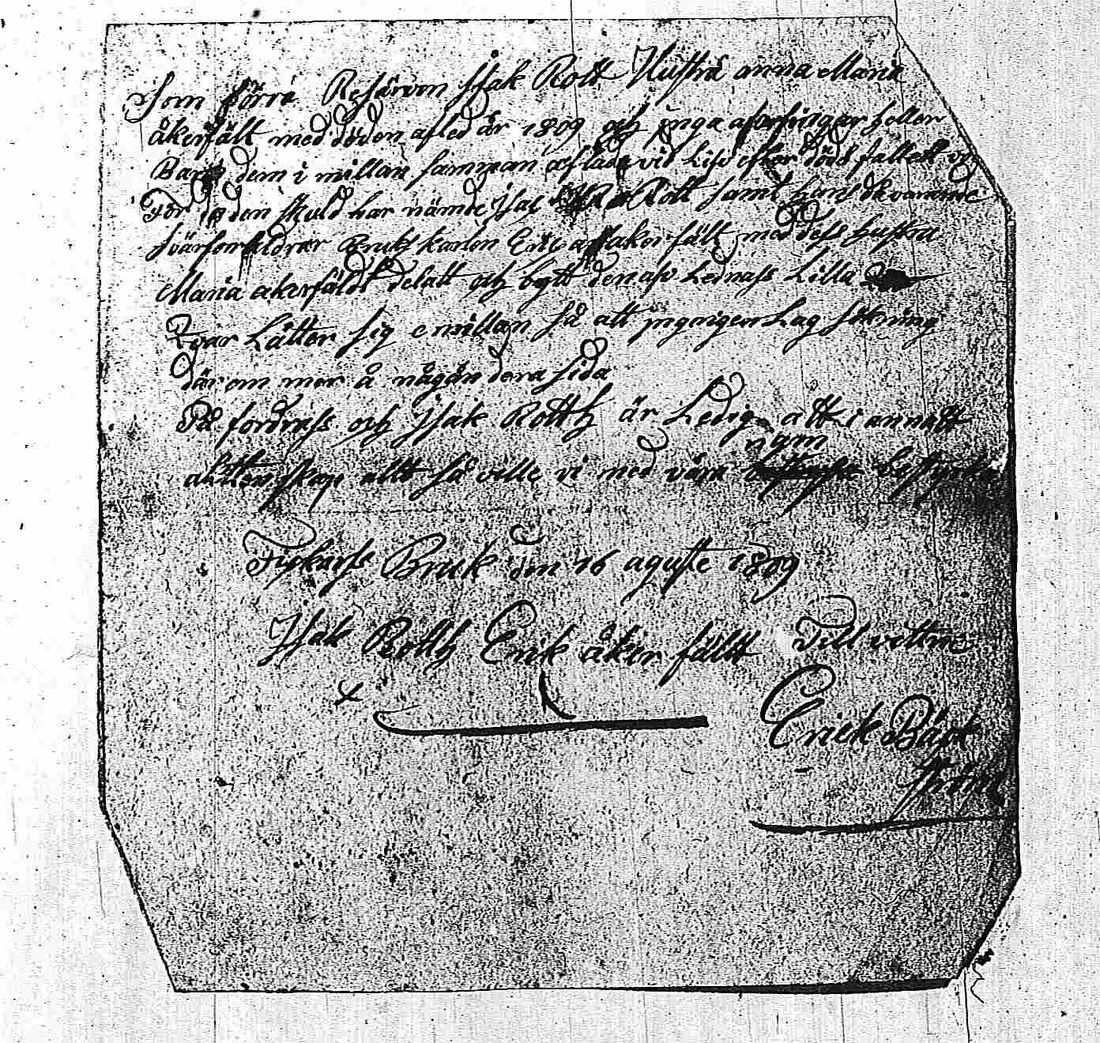 Som förra Resärven Jsak Rott Hustru anna Maria
åkerfält med döden afled år 1809 och jnga arfvingar heller
Barn dem i millan samman aflade vid Lif efter döds fallett
För den skuld har nämde jsac Rott samt
svärforäldrar Bruks karlen Eric åkerfält med dess hustru
Maria akerfäldt delatt och bytt den afLednass Lilla
qvar Låtten sig emillan så att jngrigen Lag sökning
där om mer å någån dera sida
På fordrass och Jsak Rotth är Ledig att i annatt
äkttenskap allt så ville vi med våra namn
Fiskarss Bruk den 16 aguste 1809
Jsak Rotth Erik åker fällt Till vittne
Erick Bäck